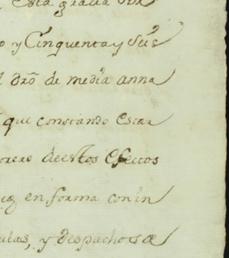 esta gracia sin
o y Cinquenta y seis
l dro de media anna
que constando estar
orero de estos efectos
en forma con in
ulas, y despachos a